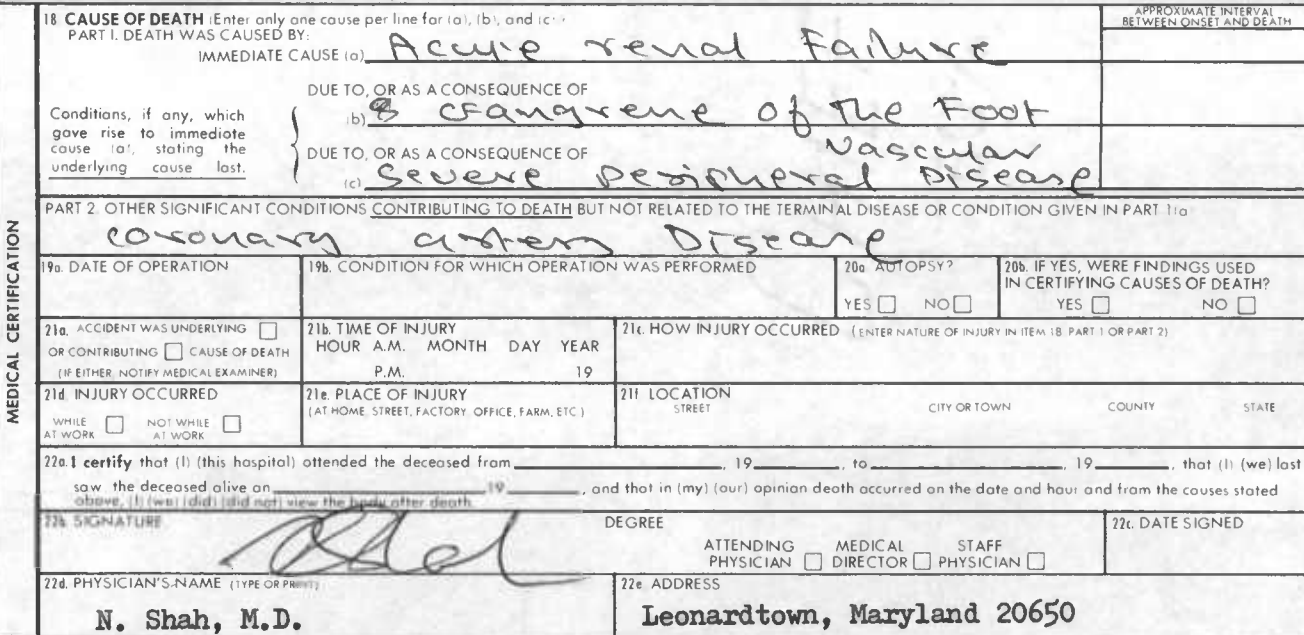 18 CAUSE OF DEATH (Enter only one cause per line for (a), (b), and (c).)
APPROXIMATE INTERVAL
BETWEEN ONSET AND DEATH
PART I. DEATH WAS CAUSED BY:
IMMEDIATE CAUSE (a) Acute renal Failure
DUE TO, OR AS A CONSEQUENCE OF
Conditions, if any, which
gave rise to immediate
cause (a), stating the
underlying cause last.
(b) Gangrene of the Foot
DUE TO, OR AS A CONSEQUENCE OF
Vascular
(c) Severe Peripheral Disease
PART 2. OTHER SIGNIFICANT CONDITIONS CONTRIBUTING TO DEATH BUT NOT RELATED TO THE TERMINAL DISEASE OR CONDITION GIVEN IN PART 1(a)
coronary artery Disease
MEDICAL CERTIFICATION
19a. DATE OF OPERATION
19b. CONDITION FOR WHICH OPERATION WAS PERFORMED
20a AUTOPSY?
YES NO
20b. IF YES, WERE FINDINGS USED
IN CERTIFYING CAUSES OF DEATH?
YES NO
21a. ACCIDENT WAS UNDERLYING
OR CONTRIBUTING CAUSE OF DEATH
(IF EITHER, NOTIFY MEDICAL EXAMINER)
21b. TIME OF INJURY
HOUR A.M. MONTH DAY YEAR
P.M. 19
21c. HOW INJURY OCCURRED (ENTER NATURE OF INJURY IN ITEM 18 PART 1 OR PART 2)
21d INJURY OCCURRED
WHILE AT WORK NOT WHILE AT WORK
21e. PLACE OF INJURY
(AT HOME, STREET, FACTORY, OFFICE, FARM, ETC.)
21f LOCATION
STREET CITY OR TOWN COUNTY STATE
22a. I certify that (I) (this hospital) attended the deceased from , 19 , to , 19 , that (I) (we) last
saw the deceased alive on 19 , and that in (my) (our) opinion death occurred on the date and hour and from the causes stated
above, (I) (we) (did) (did not) view the body after death.
22b. SIGNATURE
DEGREE
ATTENDING PHYSICIAN MEDICAL DIRECTOR STAFF PHYSICIAN
22c. DATE SIGNED
22d. PHYSICIAN'S NAME (TYPE OR PRINT)
N. Shah, M.D.
22e ADDRESS
Leonardtown, Maryland 20650